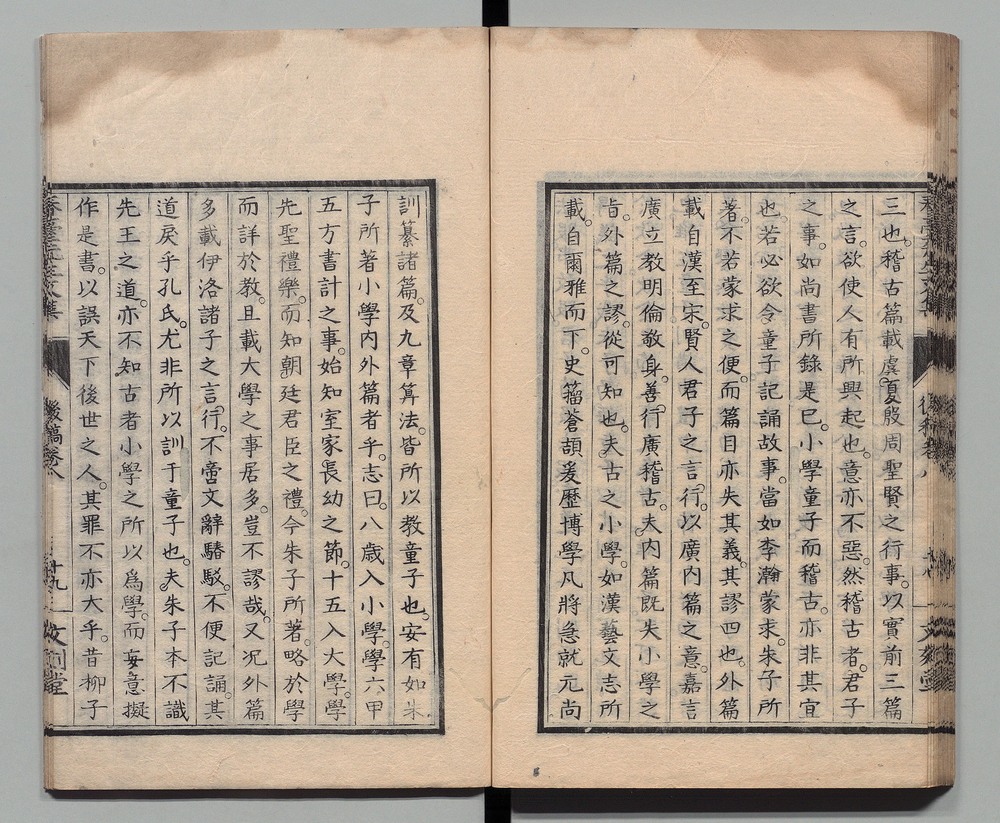 三也。稽古篇載虞夏殷周聖賢之行事。以實前三篇
之言。欲使人有所興起也。意亦不惡。然稽古者。君子
之事。如尚書所錄是已。小學童子而稽古。亦非其宜
也。若必欲令童子記誦故事。當如李瀚蒙求。朱子所
著。不若蒙求之便。而篇目亦失其義。其謬四也。外篇
載自漢至宋。賢人君子之言行。以廣內篇之意。嘉言
廣立教明倫敬身。善行廣稽古。夫內篇既失小學之
旨。外篇之謬。從可知也。夫古之小學。如漢藝文志所
載。自爾雅而下。史籀蒼頡爰歷博學凡將急就元尚
訓纂諸篇。及九章算法。皆所以教童子也。安有如朱
子所著小學內外篇者乎。志曰。八歲入小學。學六甲
五方書計之事。始知室家長幼之節。十五入大學。學
先聖禮樂。而知朝廷君臣之禮。今朱子所著。略於學
而詳於教。且載大學之事居多。豈不謬哉。又況外篇
多載伊洛諸子之言行。不啻文辭駱駁。不便記誦。其
道戾乎孔氏。尤非所以訓于童子也。夫朱子本不識
先王之道。亦不知古者小學之所以爲學。而妄意擬
作是書。以誤天下後世之人。其罪不亦大乎。昔柳子
後稿卷八
十九